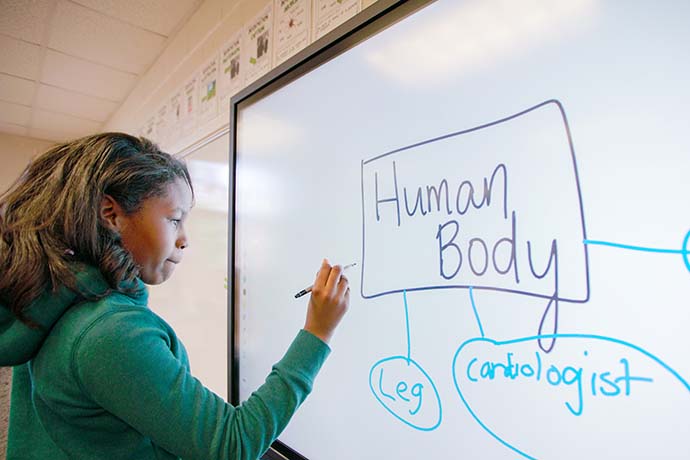 Human
Body
Leg
Cardiologist